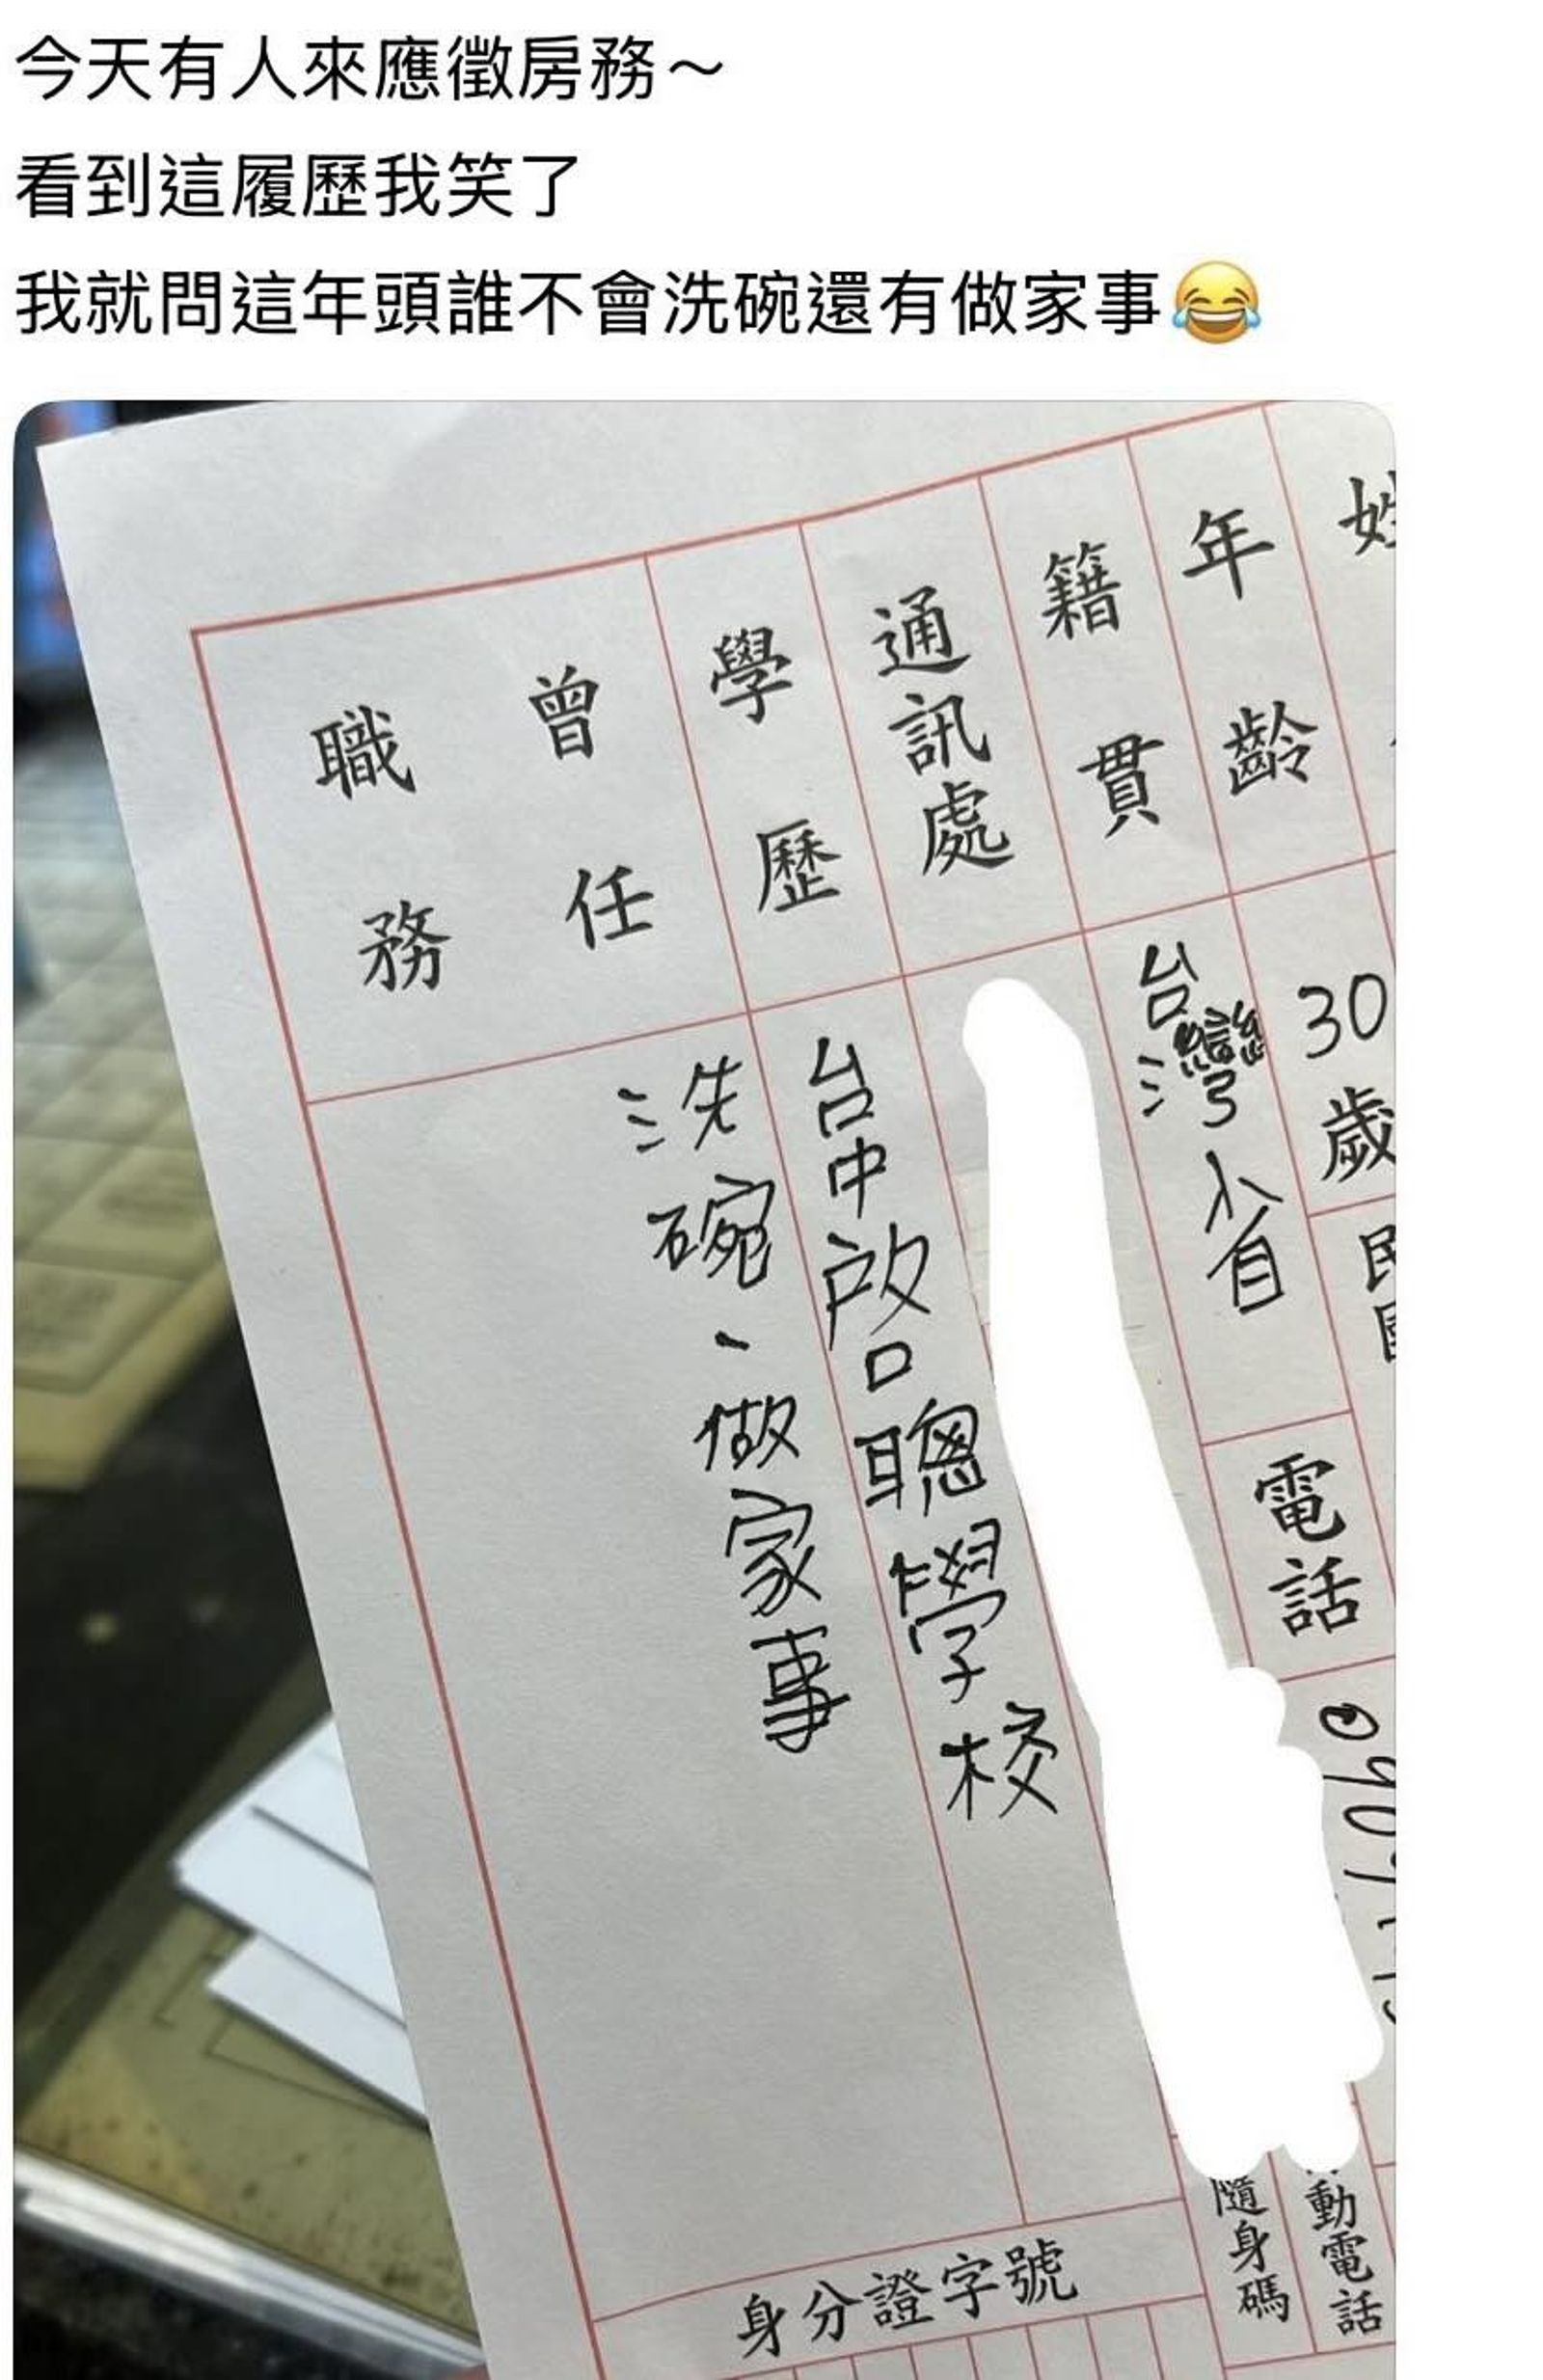 今天有人來應徵房務～
看到這履歷我笑了
我就問這年頭誰不會洗碗還有做家事😂
姓
年齡
30歲
民國
籍貫
台灣省
電話
通訊處
學歷
台中啟聰學校
曾任
職務
洗碗、做家事
動電話
隨身碼
身分證字號